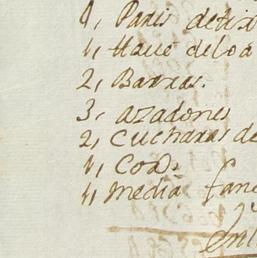 1, Pares detix
1, Llave deloa
2, Barras.
3, azadones
2, Cucharas de
1, Coa.
1, media fane